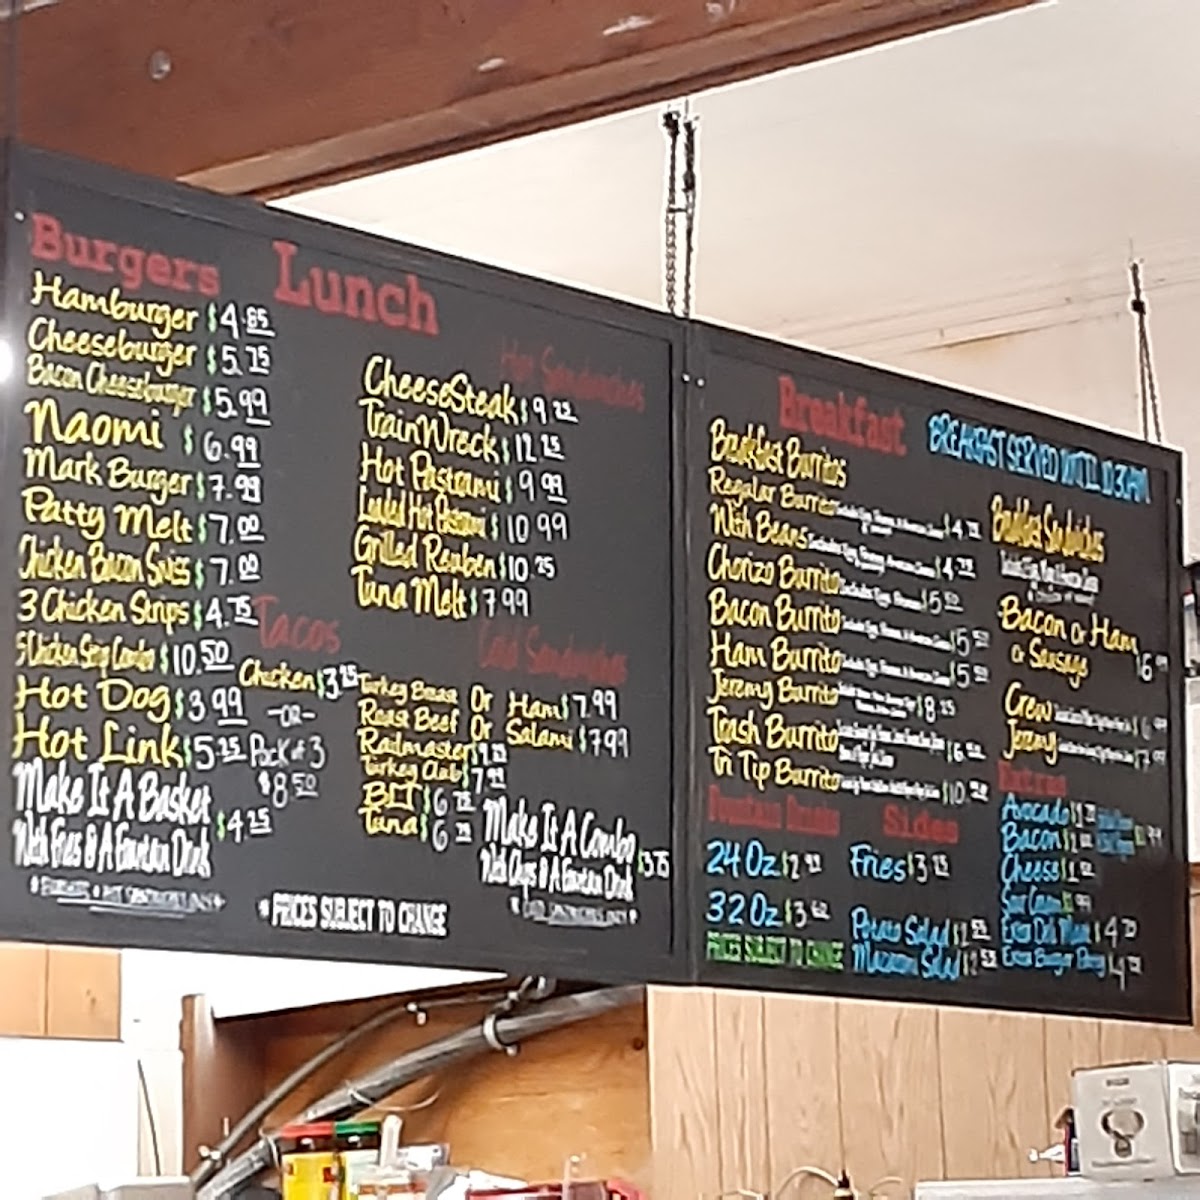 Burgers
Lunch
Hamburger $4.85
Cheeseburger $5.75
Bacon Cheeseburger $5.99
Naomi $6.99
Mark Burger $7.99
Patty Melt $7.00
Chicken Bacon Swiss $7.00
3 Chicken Strips $4.75
5 Chicken Strip Combo $10.50
Hot Dog $3.99
Hot Link $5.25
Make It A Basket
With Fries & A Fountain Drink
$4.25
Tacos
Chicken $3.25
-OR-
Pack of 3
$8.50
Hot Sandwiches
CheeseSteak $9.25
TrainWreck $12.25
Hot Pastrami $9.99
Loaded Hot Pastrami $10.99
Grilled Reuben $10.25
Tuna Melt $7.99
Cold Sandwiches
Turkey Breast Or Ham $7.99
Roast Beef Or Salami $7.99
Railmaster $9.25
Turkey Club $7.99
BLT $6.75
Tuna $6.75
Make It A Combo
With Chips & A Fountain Drink
$3.75
* PRICES SUBJECT TO CHANGE
Breakfast
BREAKFAST SERVED UNTIL 10:30AM
Breakfast Burritos
Regular Burrito
With Beans
Chorizo Burrito
Bacon Burrito
Ham Burrito
Jeremy Burrito $8.25
Trash Burrito
Tri Tip Burrito
Breakfast Sandwiches
Bacon Or Ham
Or Sausage
Crew
Jeremy
Fountain Drinks
24 Oz $2.99
32 Oz
PRICES SUBJECT TO CHANGE
Sides
Fries $3.25
Potato Salad
Macaroni Salad
Extras
Avocado
Bacon
Cheese
Sour Cream
Extra Deli Meat
Extra Burger Patty